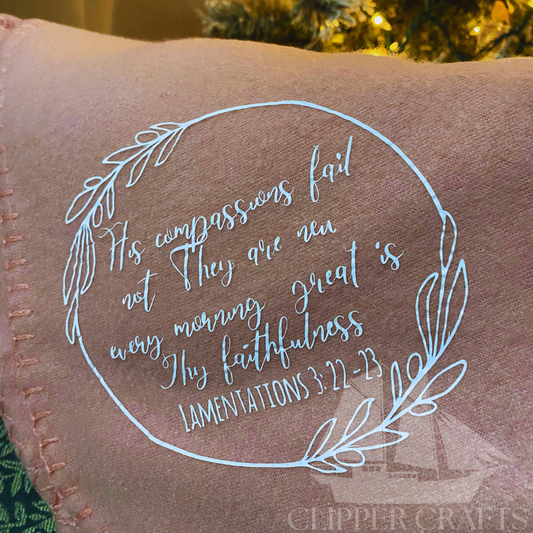 His compassions fail
not They are new
every morning great is
Thy faithfulness
LAMENTATIONS 3:22-23
CLIPPER CRAFTS